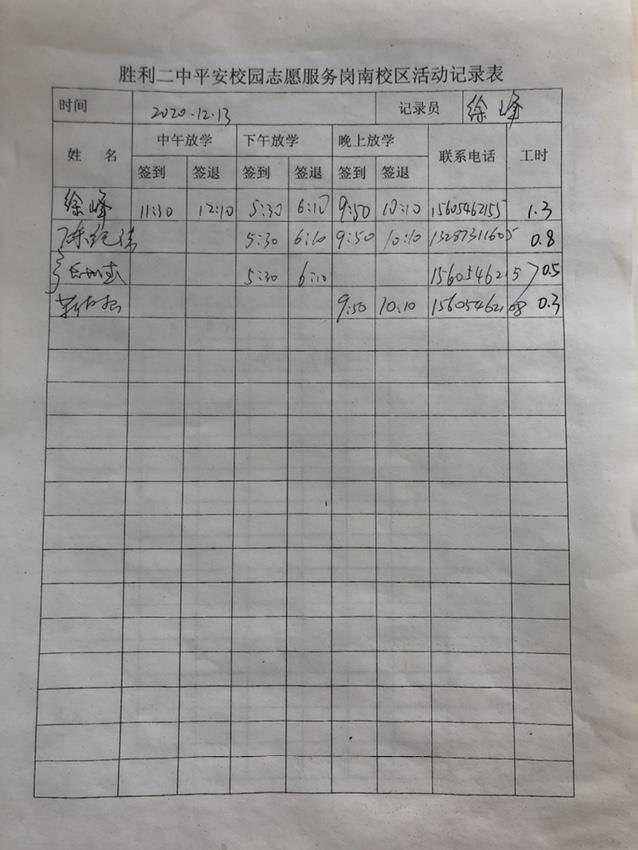 胜利二中平安校园志愿服务岗南校区活动记录表
时间 2020.12.13 记录员 徐峰
姓 名 中午放学 下午放学 晚上放学 联系电话 工时
签到 签退 签到 签退 签到 签退
徐峰 11:30 12:10 5:30 6:10 9:50 10:10 15605462155 1.3
5:30 6:10 9:50 10:10 13287311605 0.8
5:30 6:10 0.5
9:50 10:10 15605462108 0.3